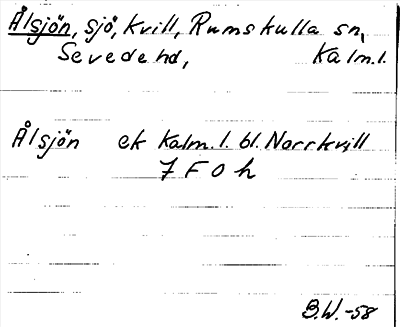 Ålsjön, sjö, Kvill, Rumskulla sn,
Sevede hd, Kalm.l.
Ålsjön ek Kalm. l. bl. Norrkvill
7 F 0 h
B.W.-58